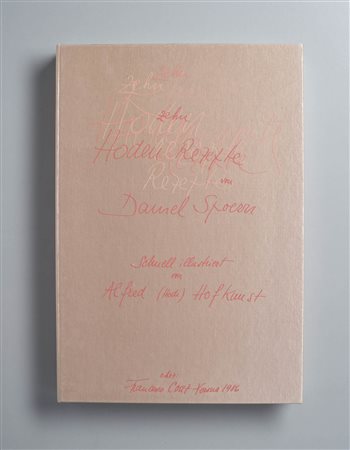 zehn
zehn
Hoden Rezepte
Rezepte
von
Daniel Spoerri
Schnell illustriert
von
Alfred (Hode) Hofkunst
oder
Francesco Conz Verona 1986